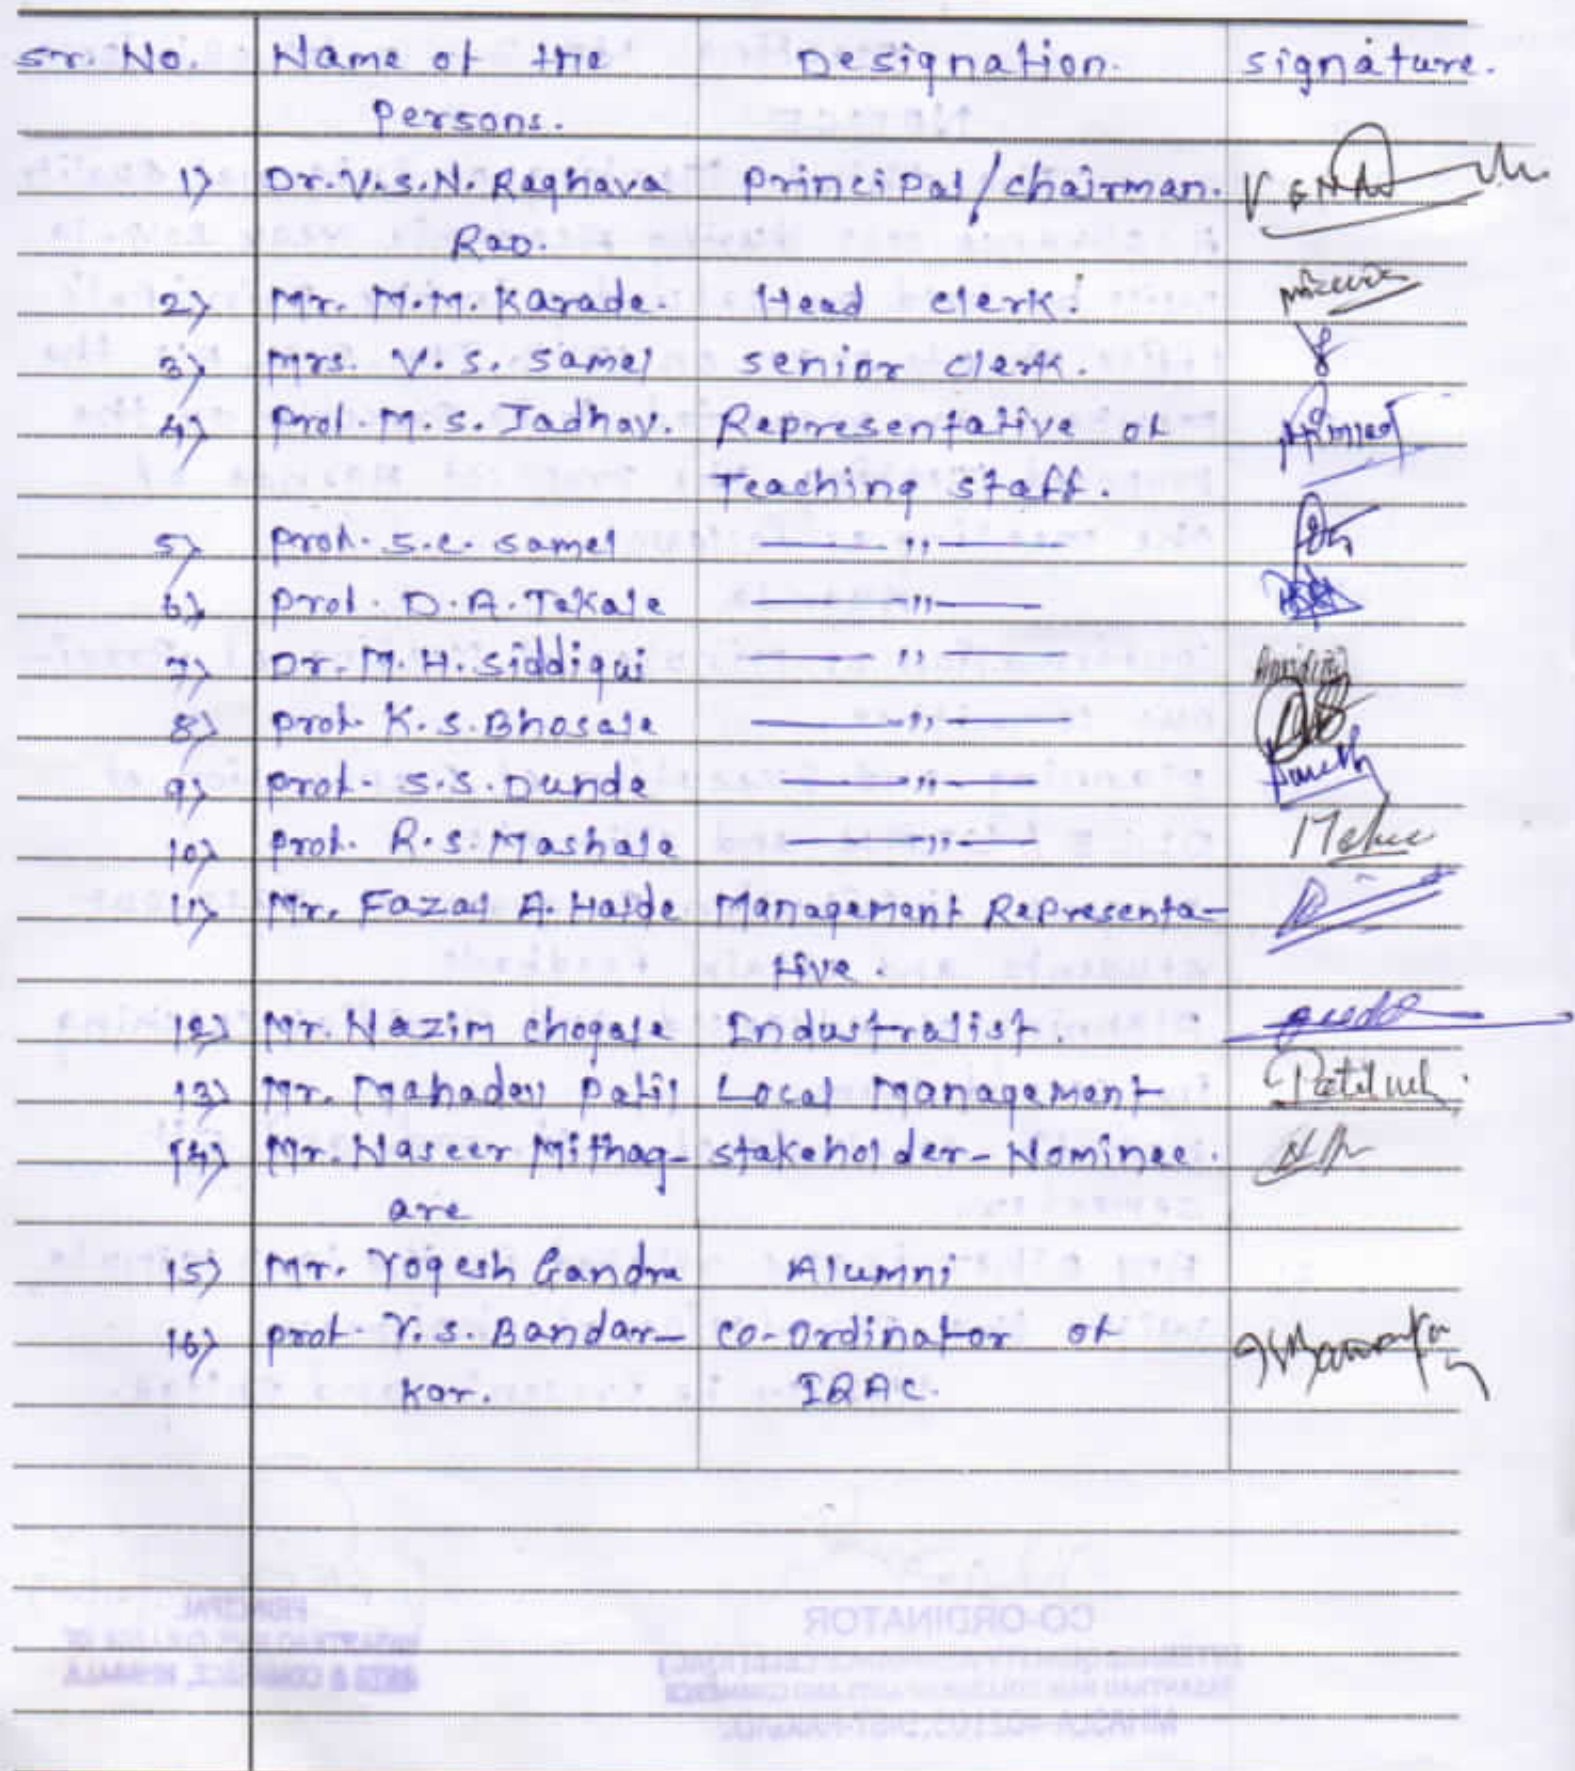 Sr. No. Name of the Designation. signature.
Persons.
1) Dr. V.S.N. Raghava Principal/chairman.
Rao.
2) Mr. M.M. Karade. Head clerk.
3) Mrs. V.S. Samel senior clerk.
4) Prof. M.S. Jadhav. Representative of
Teaching staff.
5) Prof. S.C. Samel —— ,, ——
6) Prof. D.A. Tekale —— ,, ——
7) Dr. M.H. Siddiqui —— ,, ——
8) Prof. K.S. Bhosale —— ,, ——
9) Prof. S.S. Dunde —— ,, ——
10) Prof. R.S. Mashale —— ,, ——
11) Mr. Fazal A. Halde Management Representa-
tive.
12) Mr. Nazim chogale Industralist.
13) Mr. Mahadev Patil Local Management
14) Mr. Naseer Mithag- stakeholder-Nominee.
are
15) Mr. Yogesh Gandre Alumni
16) Prof. Y.S. Bandar- Co-Ordinator of
kar. IQAC.
PRINCIPAL
CO-ORDINATOR